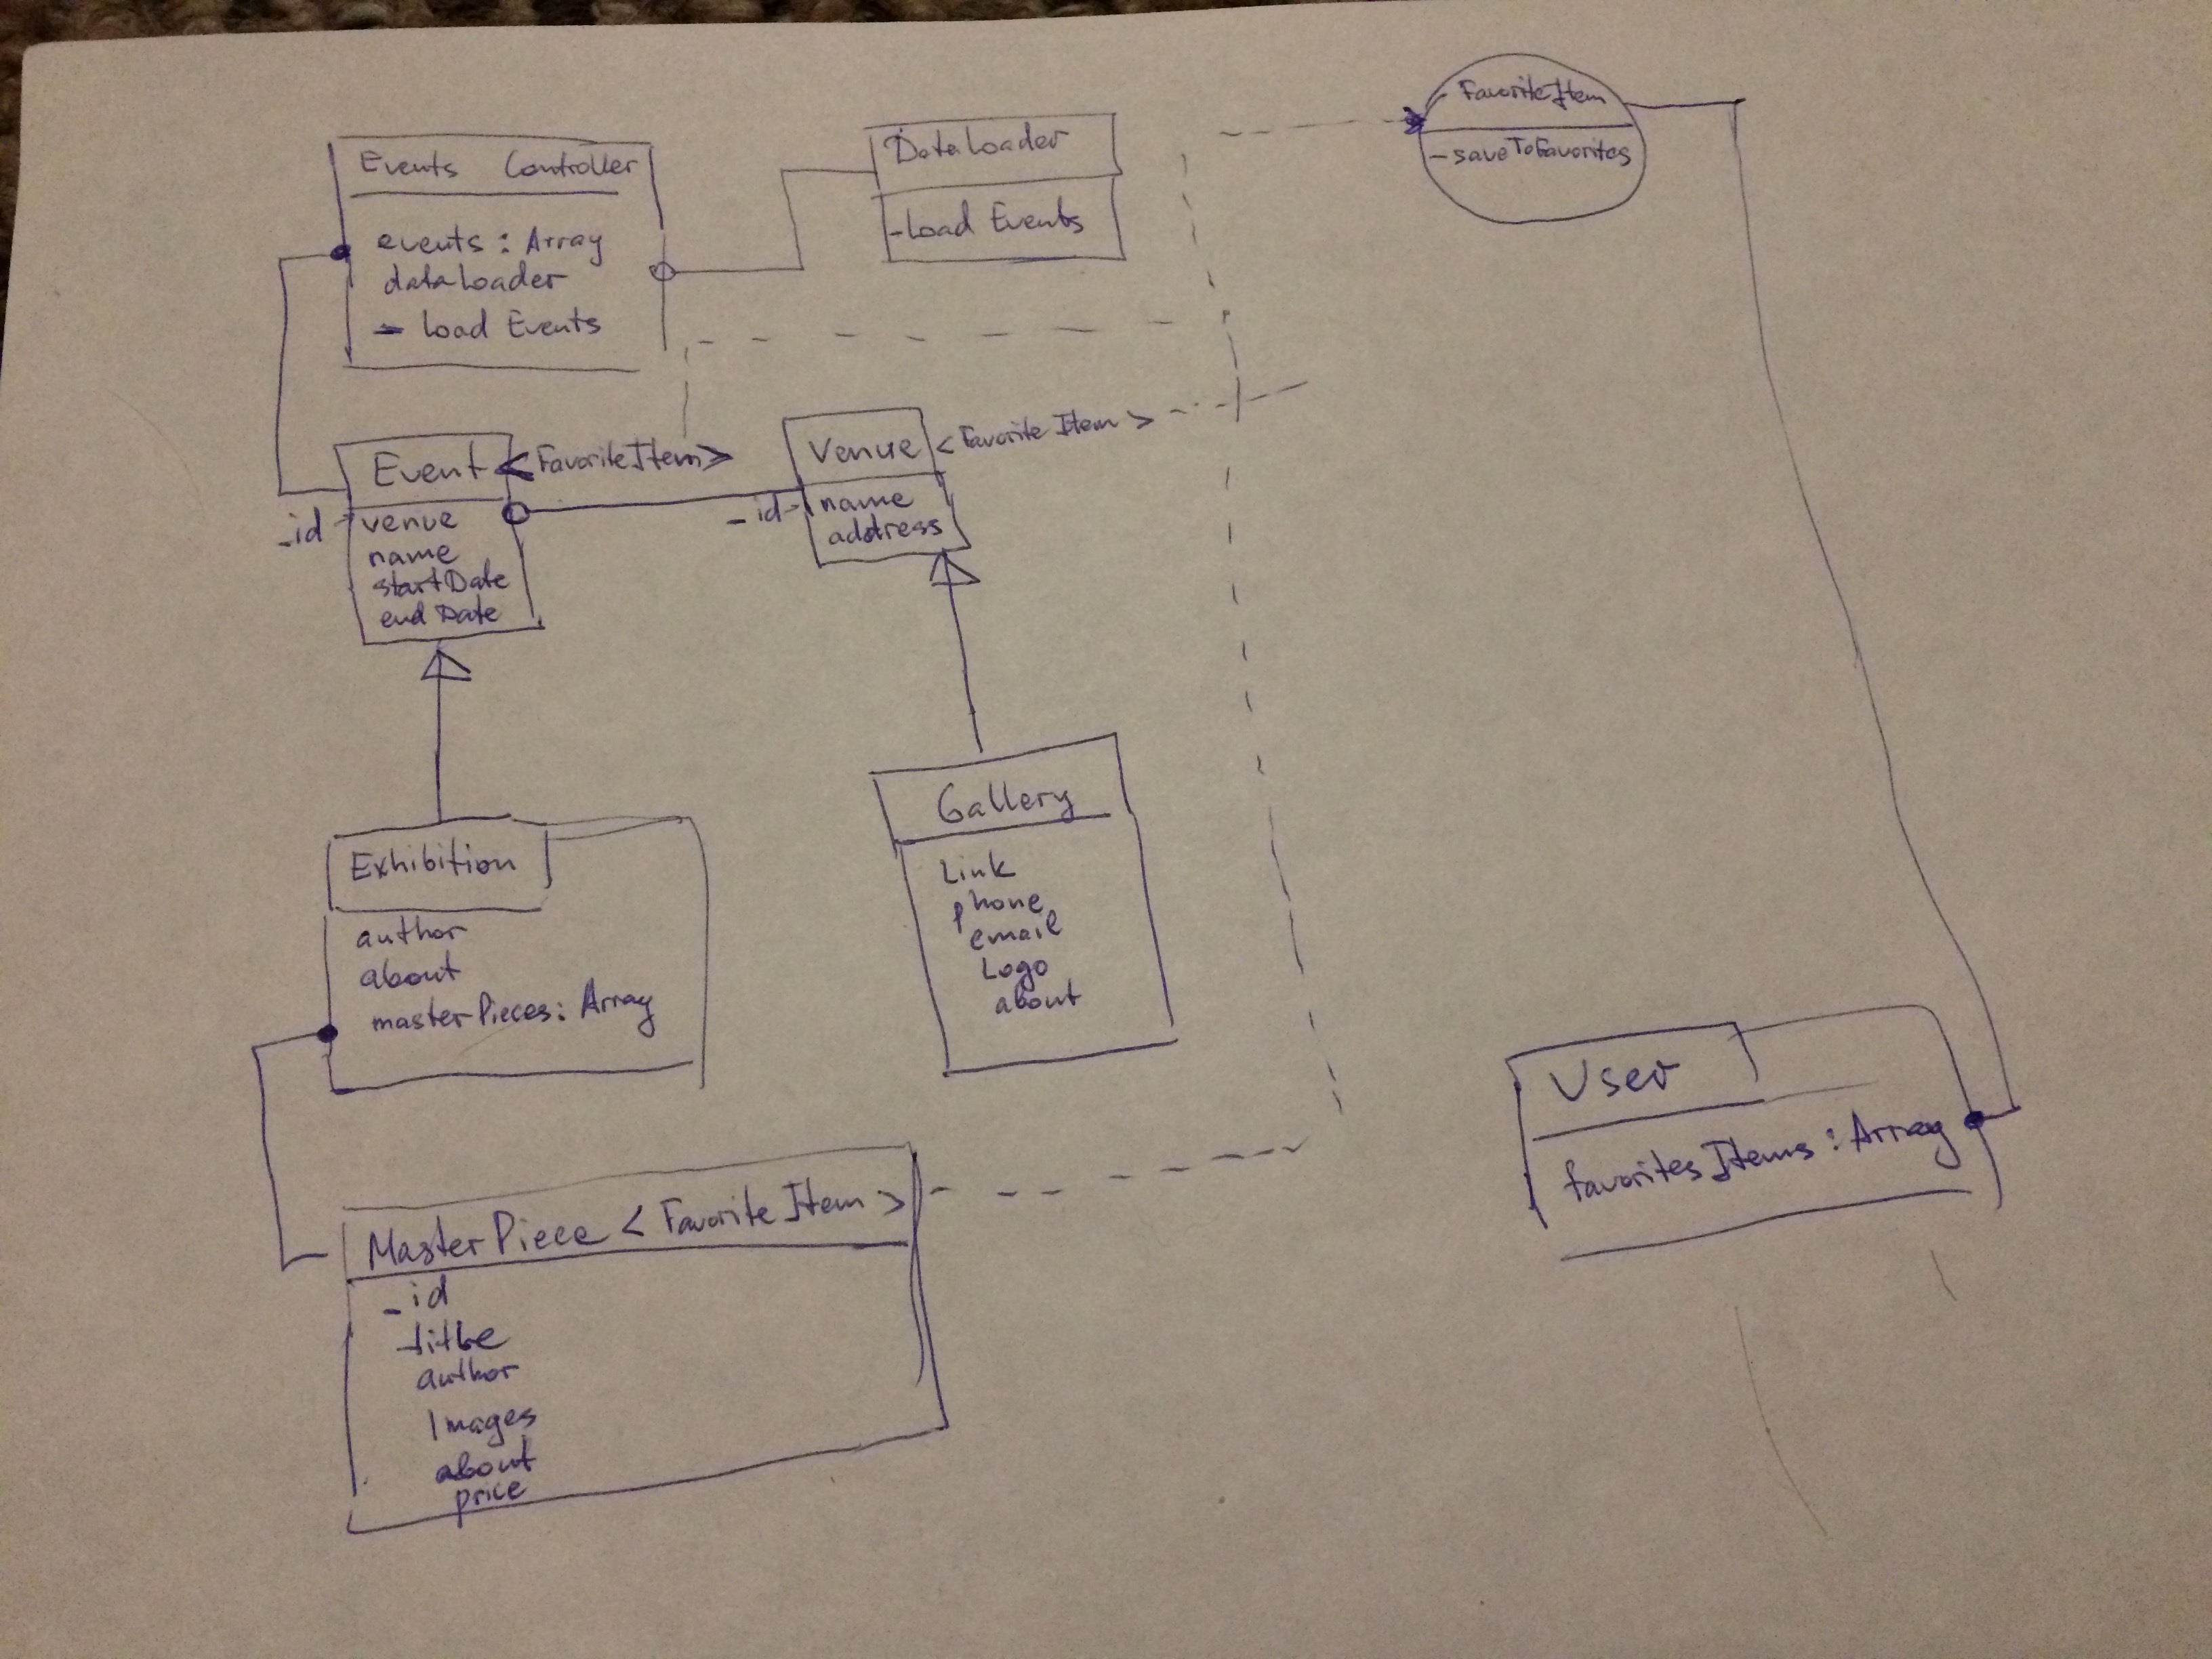 Events Controller
events : Array
dataLoader
- load Events
DataLoader
- load Events
FavoriteItem
- saveToFavorites
Event <FavoriteItem>
_id
venue
name
startDate
endDate
Venue <FavoriteItem>
_id
name
address
Exhibition
author
about
masterPieces: Array
Gallery
Link
phone
email
Logo
about
MasterPiece <FavoriteItem>
_id
title
author
Images
about
price
User
favoritesItems : Array